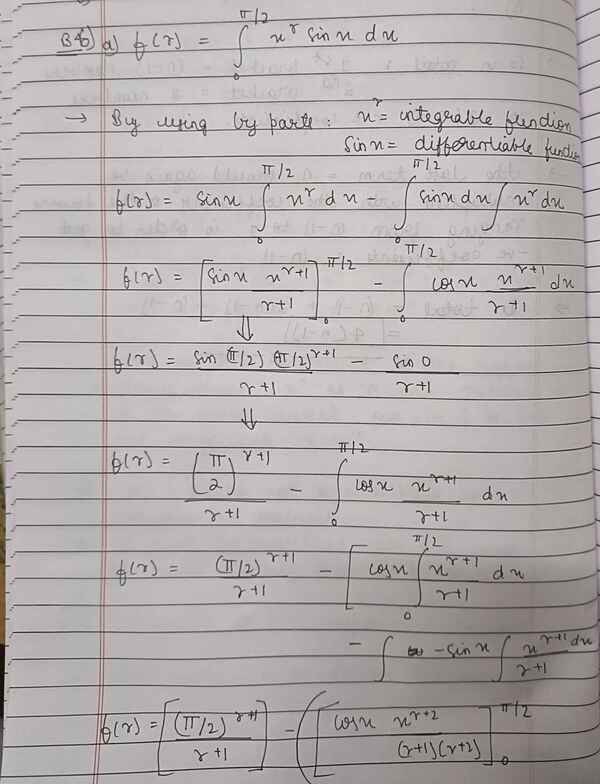 B4) a) f(r) = ∫₀^{π/2} x^r sin x dx
→ By using by parts : x^r = integrable function
sin x = differentiable function
f(r) = sin x ∫₀^{π/2} x^r dx - ∫₀^{π/2} sin x dx ∫ x^r dx
f(r) = [sin x x^{r+1} / r+1]₀^{π/2} - ∫₀^{π/2} cos x x^{r+1} / r+1 dx
⇓
f(r) = sin (π/2) (π/2)^{r+1} / r+1 - sin 0 / r+1
⇓
f(r) = (π/2)^{r+1} / r+1 - ∫₀^{π/2} cos x x^{r+1} / r+1 dx
f(r) = (π/2)^{r+1} / r+1 - [cos x ∫₀^{π/2} x^{r+1} / r+1 dx
- ∫ - sin x ∫ x^{r+1} dx / r+1
f(r) = [(π/2)^{r+1} / r+1] - ([cos x x^{r+2} / (r+1)(r+2)]₀^{π/2}